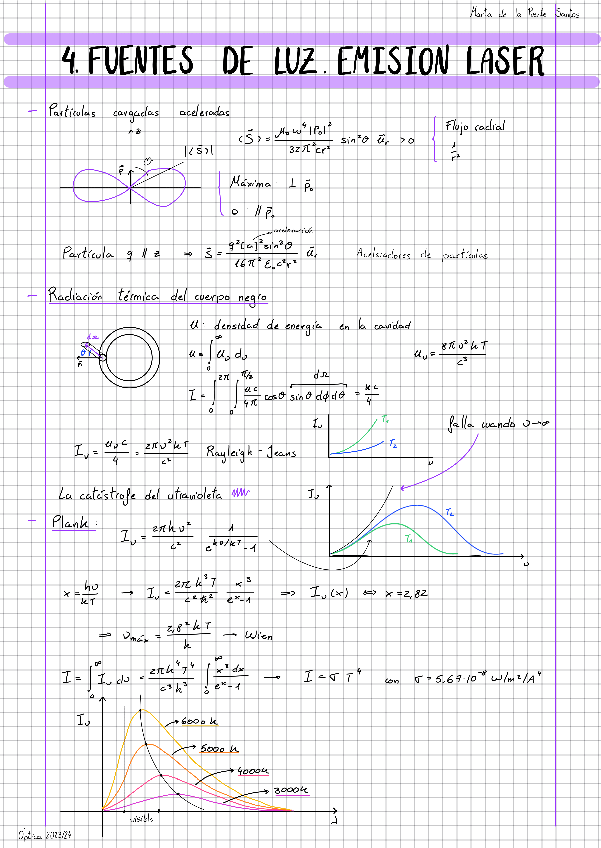 Marta de la Puente Santos
4. FUENTES DE LUZ. EMISION LASER
- Partículas cargadas aceleradas
⟨S⃗⟩ = μ₀ω⁴|P₀|² / 32π²cr² sin²θ u⃗ᵣ > 0
Flujo radial
1/r²
z
p⃗ θ |⟨S⃗⟩|
Máxima ⊥ p⃗₀
0 // p⃗₀
aceleración
Partícula q // z ⇒ S⃗ = q²[a]² sin²θ / 16π²ε₀c³r² u⃗ᵣ
de partículas
- Radiación térmica del cuerpo negro
dΩ
θ
n⃗
u: densidad de energía en la cavidad
u = ∫₀^∞ u_ν dν
u_ν = 8πν²kT / c³
I = ∫₀^2π ∫₀^π/2 uc/4π cosθ sinθ dϕ dθ = uc/4
dΩ
I_ν = u_ν c / 4 = 2πν²kT / c² Rayleigh - Jeans
I_ν T₁ T₂ ν
falla cuando ν→∞
La catástrofe del utravioleta
- Plank:
I_ν = 2πhν³ / c² 1 / e^(hν/kT) - 1
I_ν T₂ T₁ ν
x = hν/kT → I_ν = 2πk³T / c²h² x³ / eˣ-1 ⇒ I_ν(x) ⇔ x = 2,82
⇒ ν_máx = 2,82 kT / h → Wien
I = ∫₀^∞ I_ν dν = 2πk⁴T⁴ / c³h³ ∫₀^∞ x³dx / eˣ-1 → I = σ T⁴ con σ = 5,67·10⁻⁸ W/m²/A⁴
I_ν
6000 k
5000 k
4000 k
3000 k
visible
λ
Óptica 2023/24